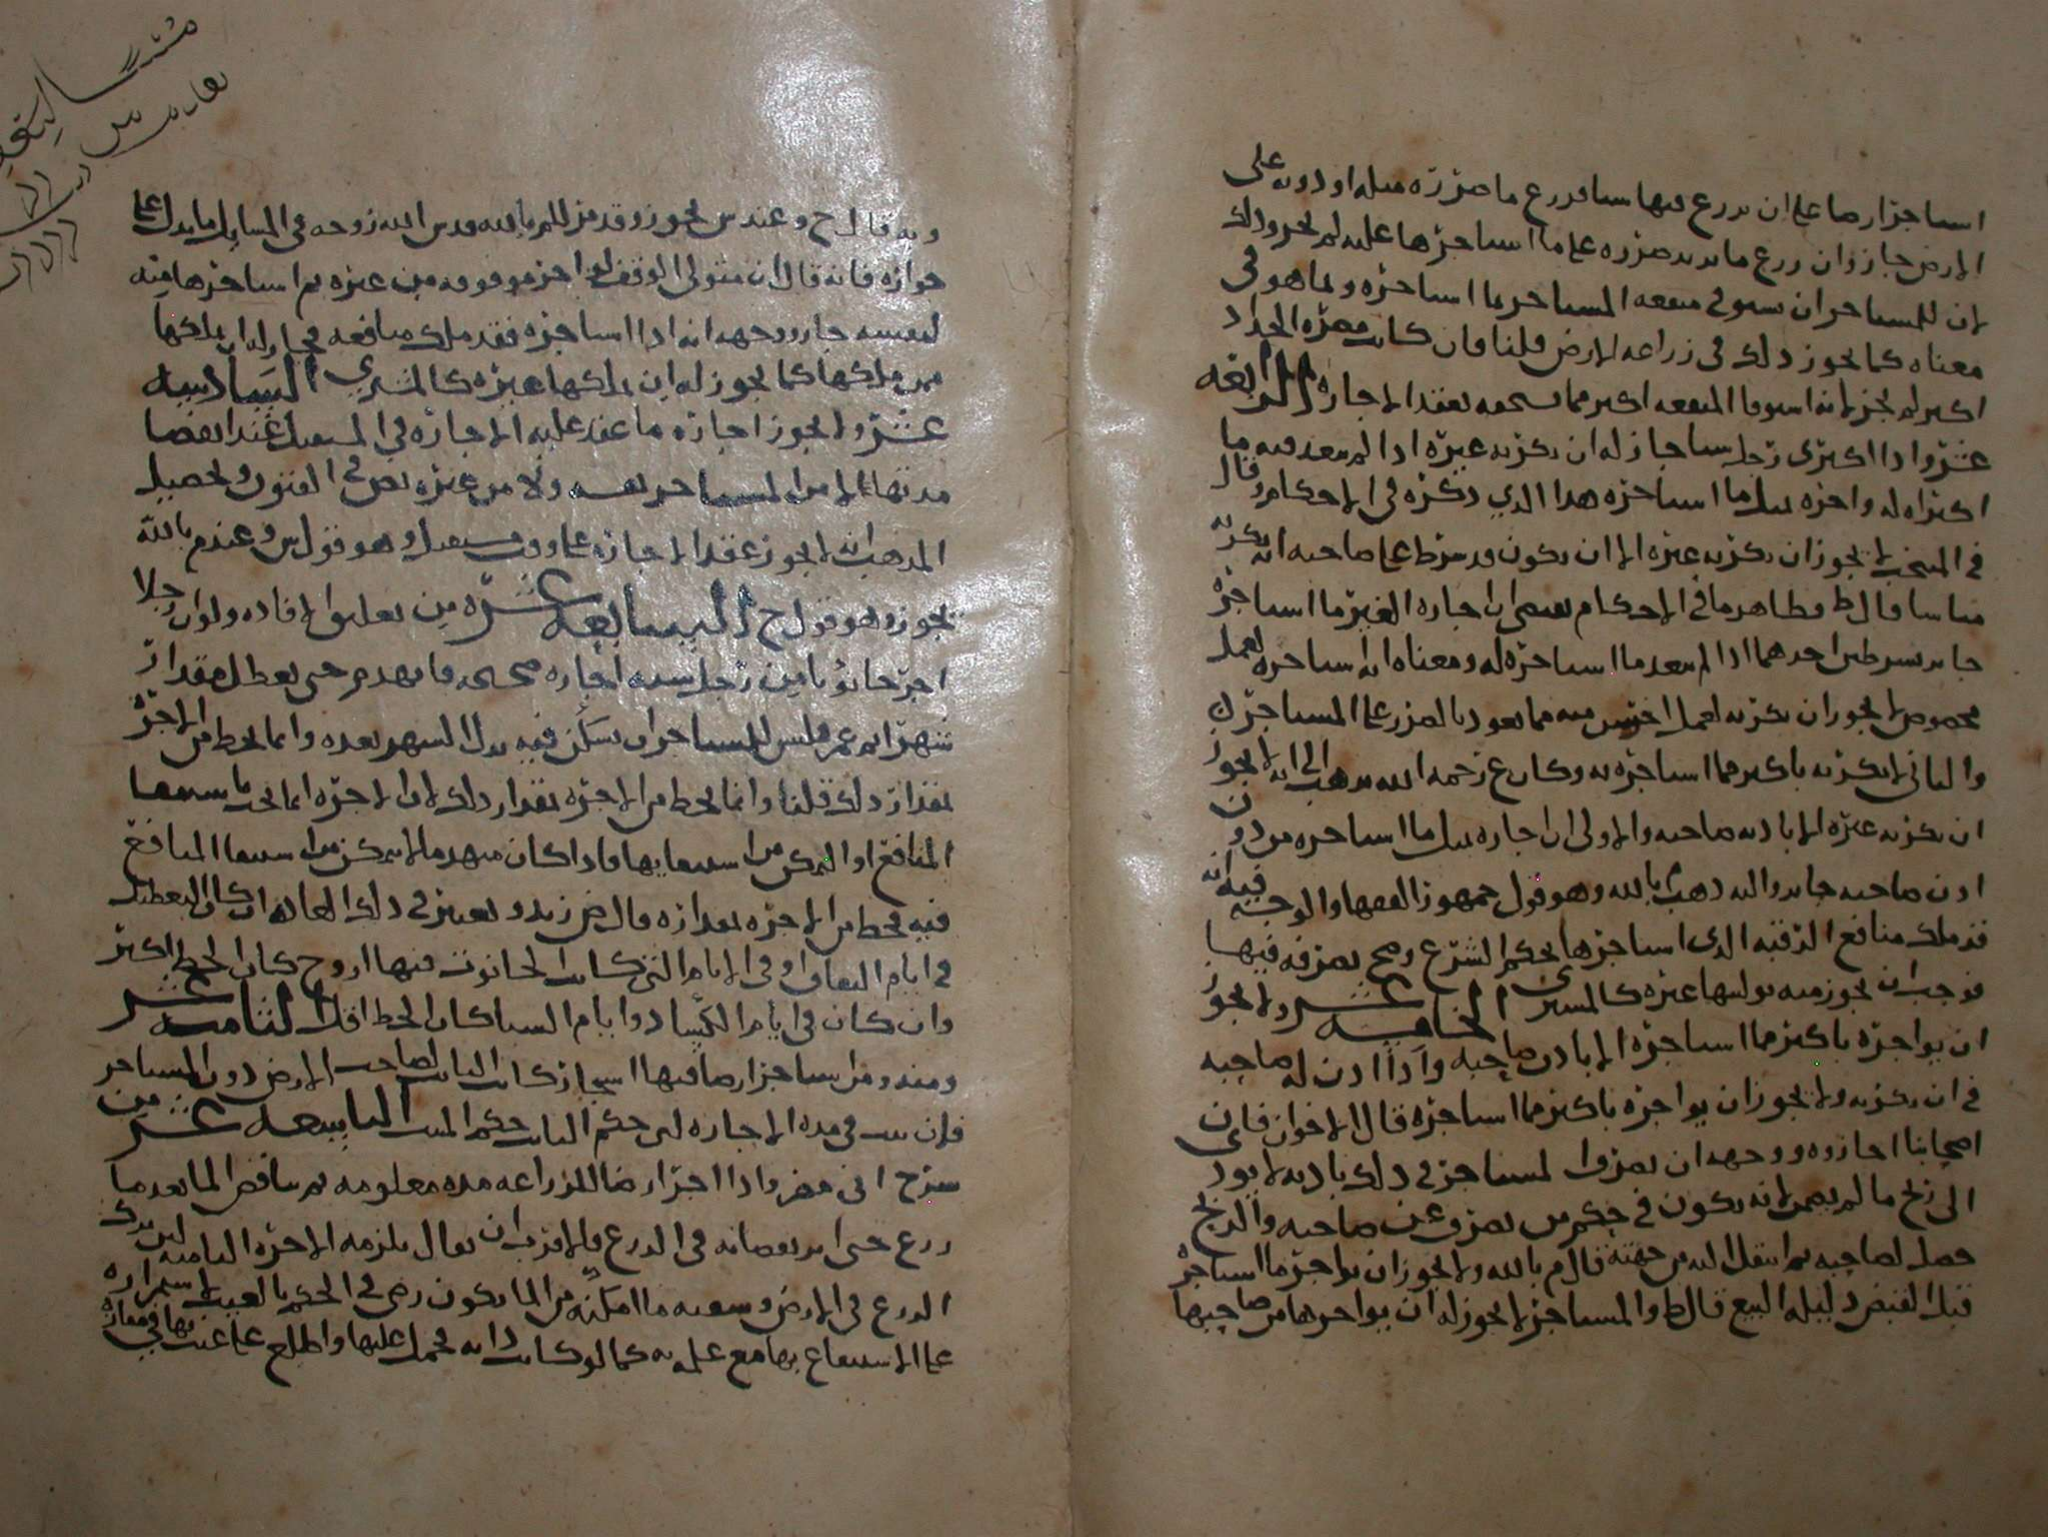 استاجر ارضا على ان يزرع فيها شيا فزرع ما ضرره مثله او دونه على
الارض جاز وان زرع ما يزيد ضرره على ما استاجرها عليه لم يجز وذلك
لان للمستاجر ان يستوفي منفعه المستاجر بما استاجره وبما هو في
معناه كما يجوز ذلك في زراعه الارض قلنا فان كانت مضره الحداد
اكثر لم يجز لانه استوفا المنفعه اكثر مما يستحقه بعقد الاجاره الرابعه
عشر واذا اكترى رجل شيا جاز له ان يكريه غيره اذا لم يتعد فيه ما
اكتراه له واجره بمثل ما استاجره هذا الذي ذكره في الاحكام وقال
في المنتخب لا يجوز ان يكريه غيره الا ان يكون قد شرط على صاحبه انه يكريه
من شا قال ط فظاهر ما في الاحكام يقتضي ان اجاره الغير ما استاجره
جايز بشرطين احدهما اذا لم يتعد ما استاجره له ومعناه انه استاجره لعمل
مخصوص لا يجوز ان يكريه لعمل اخر منه مما يعود بالضرر على المستاجر
والثاني لا يكريه باكثر مما استاجره به وكان ع رحمه الله يذهب الى انه لا يجوز
ان يكريه غيره الا باذن صاحبه والاولى ان اجاره مثل ما استاجره من دون
اذن صاحبه جايز واليه ذهب م بالله وهو قول جمهور الفقها والوجه فيه انه
قد ملك منافع الرقبه الذي استاجرها بحكم الشرع وصح تصرفه فيها
فوجب ان يجوز منه توليتها غيره كالمشتري الخامسه عشر ولا يجوز
ان يواجره باكثر مما استاجره الا باذن صاحبه واذا اذن له صاحبه
في ان يكريه ولا يجوز ان يواجره باكثر مما استاجره قال الاخوان فان
اصحابنا اجازوه ووجهه ان تصرف المستاجر في ذلك باذنه لا يودي
الى ربح ما لم يضمن لانه يكون في حكم من تصرف عن صاحبه والربح
حصل لصاحبه ثم انتقل اليه من جهته قال م بالله ولا يجوز ان يواجر ما استاجره
قبل القبض دليله البيع قال ط والمستاجر لا يجوز له ان يواجرها من صاحبها
وبه قال ح وعند س يجوز وقد مر للم بالله قدس الله روحه في المسايل ما يدل على
جوازه فانه قال ان متولي الوقف اذا اجر موقوفه من غيره ثم استاجرها منه
لنفسه جاز ووجهه انه اذا استاجره فقد ملك منافعه فجاز له ان يملكها
ممن ملكها كما يجوز له ان يملكها غيره كالمشتري السادسه
عشر ولا يجوز اجاره ما عقد عليه الاجاره في المستقبل عند انقضا
مدتها لا من المستاجر نفسه ولا من غيره نص في الفنون وتحصيل
المذهب انه لا يجوز عقد الاجاره على وقت مستقبل وهو قول س وعند م بالله
يجوز وهو قول ح السابعه عشره من تعليق الافاده ولو ان رجلا
اجر حانوتا من رجل سنه اجاره صحيحه فانهدم حتى تعطل مقدار
شهر ثم عمر فليس للمستاجر ان يسكن فيه بدل الشهر بعده وانما يحط من الاجره
بمقدار ذلك قلنا وانما يحط من الاجره بمقدار ذلك لان الاجره انما تجب باستيفا
المنافع او التمكن من استيفايها فاذا كان منهدما لا يتمكن من استيفا المنافع
فيه فيحط من الاجره بمقداره قال ض زيد ويعتبر في ذلك العاده ان كان التعطيل
في ايام النفاق او في الايام التي كانت الحانوت فيها اروح كان الحط اكثر
وان كان في ايام الكساد وايام الشتا كان الحط اقل الثامنه عشر
ومنه ومن استاجر ارضا فيها اشجار كانت النابت لصاحب الارض دون المستاجر
فان نبت في مده الاجاره لان حكم النابت حكم المنبت التاسعه عشر من
شرح ابي مضر واذا اجر ارضا للزراعه مده معلومه ثم تناقص الما بعد ما
زرع حتى اثر نقصانه في الزرع فالاقرب ان يقال يلزمه الاجره التامه لان ترك
الزرع في الارض وسقيه ما امكنه من الما يكون رضى في الحكم بالعيب لاستمراره
على الانتفاع بها مع علمه به كما لو كانت دابه فحمل عليها واطلع على عيب بها في مفازه